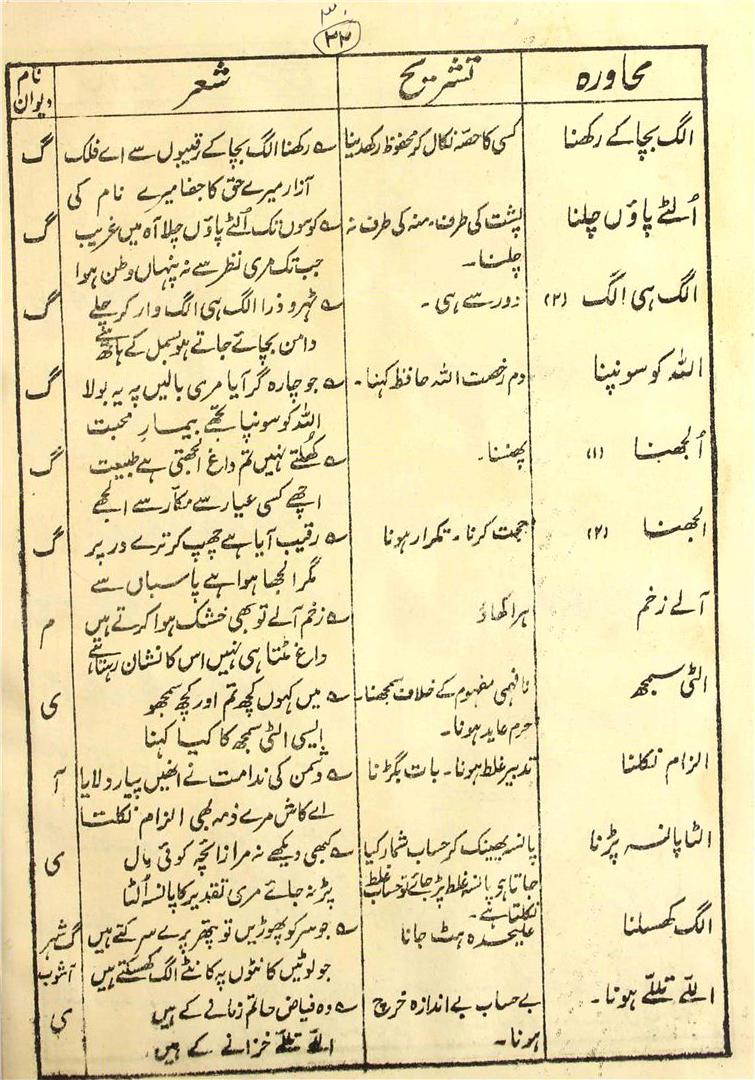 ۳۰
۳۲
محاورہ | تشریح | شعر | نام دیوان
الگ بچا کے رکھنا | کسی کا حصہ نکال کر محفوظ رکھدینا | ے رکھنا الگ بچا کے رقیبوں سے اے فلک | گ
آزار میرے حق کا جفا میرے نام کی
اُلٹے پاؤں چلنا | پشت کی طرف، منہ کی طرف نہ | ے کوسوں تک اُلٹے پاؤں چلا آہ میں غریب | گ
چلنا۔ | جب تک مری نظر سے نہ پنہاں وطن ہوا
الگ ہی الگ (۲) | زور سے ہی۔ | ے ٹہرو ذرا الگ ہی الگ وار کر چلے | گ
دامن بچائے جاتے ہو بسمل کے ہاتھ سے
اللہ کو سونپنا | دم رخصت اللہ حافظ کہنا۔ | ے جو چارہ گر آیا مری بالیں پہ یہ بولا | گ
اللہ کو سونپا تجھے بیمارِ محبت
اُلجھنا (۱) | پھنسنا۔ | ے کُھلتے نہیں تم داغ الجھتی ہے طبیعت | گ
اچھے کسی عیار سے مکّار سے الجھے
الجھنا (۲) | حجت کرنا۔ تکرار ہونا | ے رقیب آیا ہے چھپ کر ترے در پر | گ
مگر الجھا ہوا ہے پاسباں سے
آلے زخم | ہرا گھاؤ | ے زخم آلے تو بھی خشک ہوا کرتے ہیں | م
داغ مٹتا ہی نہیں اس کا نشاں رہتا ہے
الٹی سمجھ | نافہمی مفہوم کے خلاف سمجھنا۔ | ے میں کہوں کچھ تم اور کچھ سمجھو | ی
جرم عاید ہونا۔ | ایسی الٹی سمجھ کا کیا کہنا
الزام نکلنا | تدبیر غلط ہونا۔ بات بگڑنا | ے دشمن کی ندامت نے انھیں پیار دلایا | آ
اے کاش مرے ذمہ بھی الزام نکلتا
الٹا پانسہ پڑنا | پانسہ پھینک کر حساب شمار کیا | ے کبھی دیکھے نہ مرا زائچہ کوئی رمال | ی
جاتا ہی پانسہ غلط پڑ جائے تو حساب غلط | پڑ نہ جائے مری تقدیر کا پانسہ اُلٹا
نکلتا ہے۔
الگ کھسکنا | علیحدہ ہٹ جانا | ے جو سر کو پھوڑیں تو پتھر پرے سرکتے ہیں | گ شہر
جو لوٹیں کانٹوں پہ کانٹے الگ کھسکتے ہیں | آشوب
اللّے تللّے ہونا۔ | بے حساب بے اندازہ خرچ | ے وہ فیاض حاتم زمانے کے ہیں | ی
ہونا۔ | اللّے تللّے خزانے کے ہیں